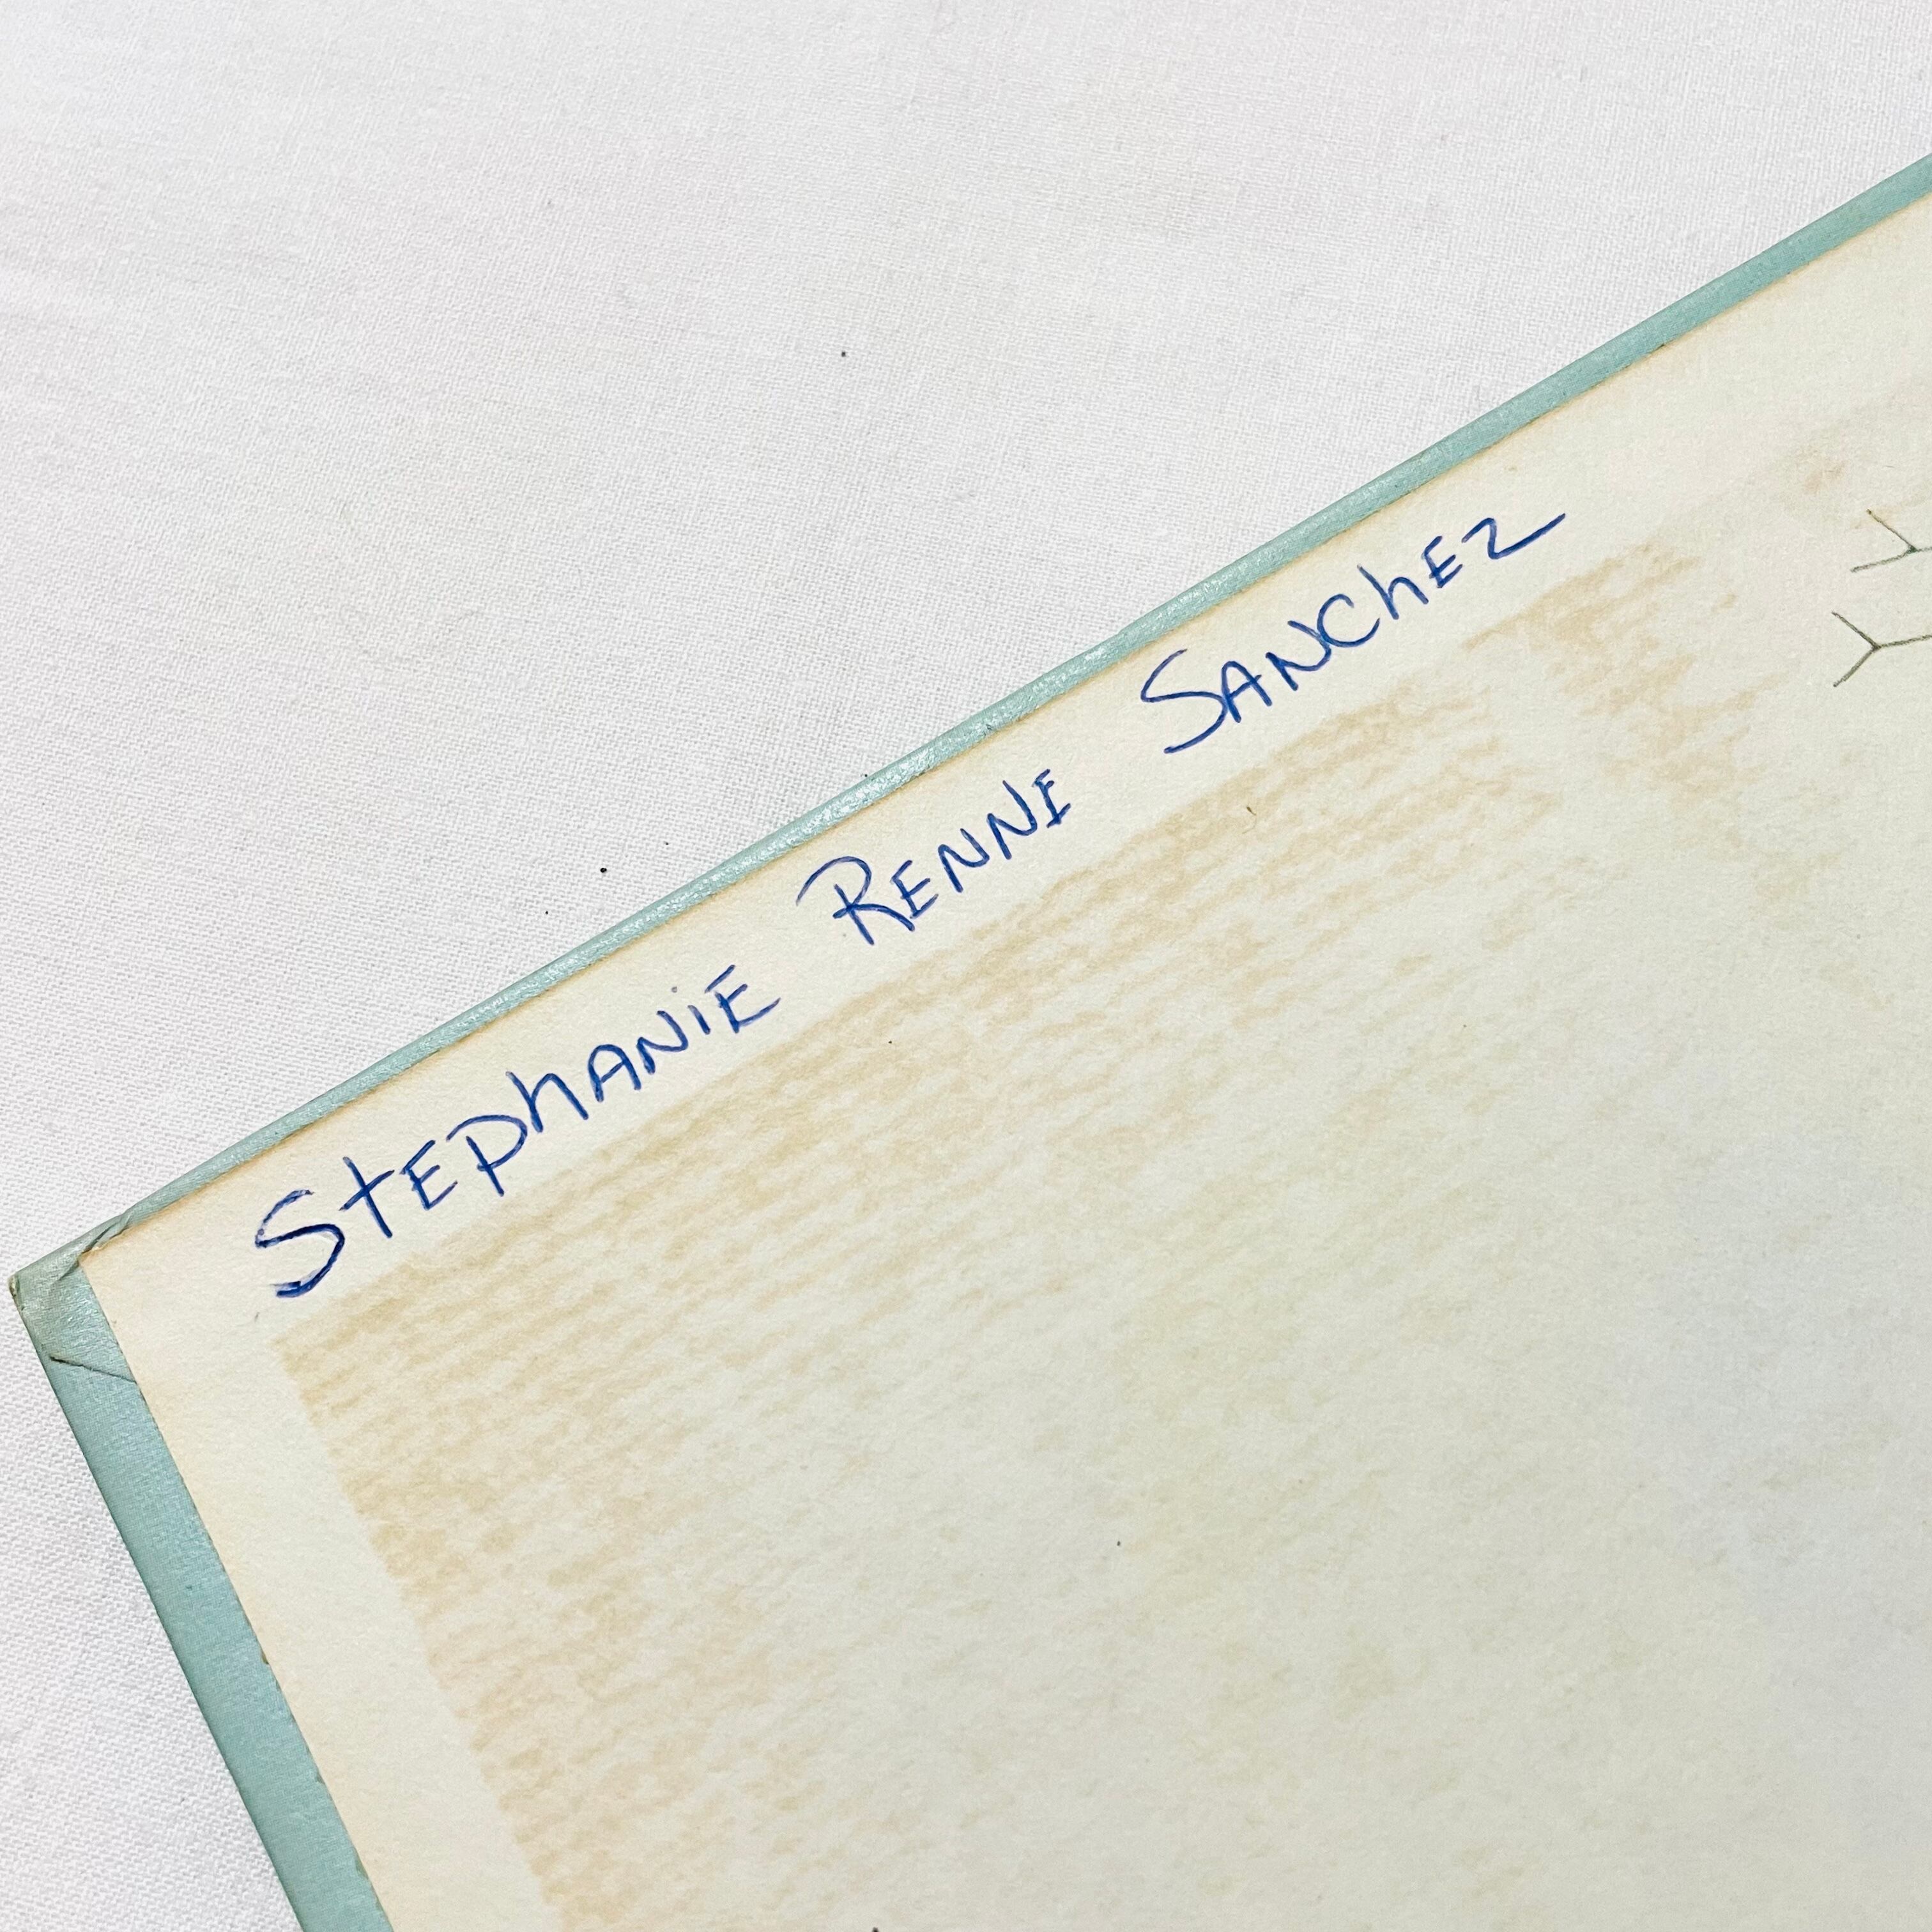 StEphANiE RENNE SANChEz